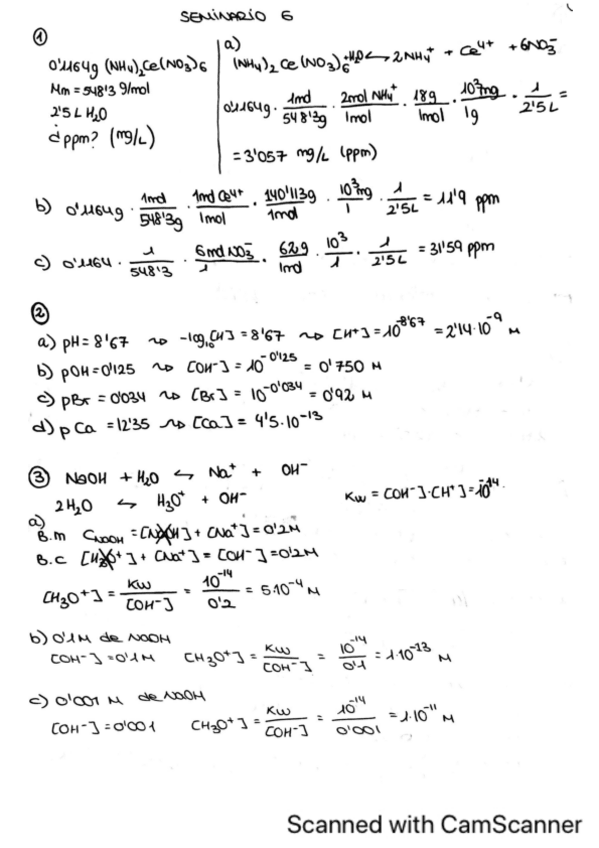 SEMINARIO 6
①
0'1164g (NH₄)₂Ce(NO₃)6
Mm = 548'3 g/mol
2'5 L H₂O
¿ppm? (mg/L)
a)
(NH₄)₂Ce(NO₃)₆ +H₂O ⇆ 2NH₄⁺ + Ce⁴⁺ + 6NO₃⁻
0'1164g · 1mol/548'3g · 2mol NH₄⁺/1mol · 18g/1mol · 10³mg/1g · 1/2'5L =
= 3'057 mg/L (ppm)
b) 0'1164g · 1mol/548'3g · 1mol Ce⁴⁺/1mol · 140'113g/1mol · 10³mg/1 · 1/2'5L = 11'9 ppm
c) 0'1164 · 1/548'3 · 6mol NO₃⁻/1 · 62g/1mol · 10³/1 · 1/2'5L = 31'59 ppm
②
a) pH = 8'67 ⇝ -log₁₀[H] = 8'67 ⇝ [H+] = 10^-8'67 = 2'14·10⁻⁹ M
b) pOH = 0'125 ⇝ [OH⁻] = 10^-0'125 = 0'750 M
c) pBr = 0'034 ⇝ [Br] = 10^-0'034 = 0'92 M
d) pCa = 12'35 ⇝ [Ca] = 4'5·10⁻¹³
③ NaOH + H₂O ⇆ Na⁺ + OH⁻
2H₂O ⇆ H₃O⁺ + OH⁻
Kw = [OH⁻]·[H⁺] = 10⁻¹⁴
a)
B.m C_NaOH = [NaOH] + [Na⁺] = 0'2M
B.c [H₃O⁺] + [Na⁺] = [OH⁻] = 0'2M
[H₃O⁺] = Kw/[OH⁻] = 10⁻¹⁴/0'2 = 5·10⁻⁴ M
b) 0'1M de NaOH
[OH⁻] = 0'1M [H₃O⁺] = Kw/[OH⁻] = 10⁻¹⁴/0'1 = 1·10⁻¹³ M
c) 0'001 M de NaOH
[OH⁻] = 0'001 [H₃O⁺] = Kw/[OH⁻] = 10⁻¹⁴/0'001 = 1·10⁻¹¹ M
Scanned with CamScanner